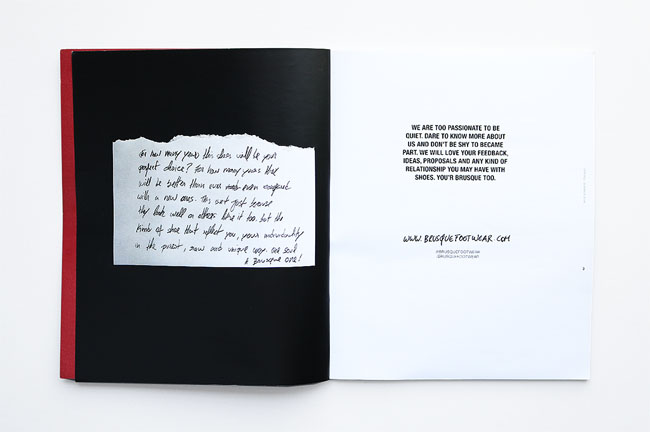 for how many years this shoes will be your
perfect choice? For how many years they
will be better than ever even compared
with a new ones. This not just because
they look well or others like it too. but the
kinds of shoe that reflect you, your individuality
in the purest, raw and unique way
A Brusque one!
WE ARE TOO PASSIONATE TO BE
QUIET. DARE TO KNOW MORE ABOUT
US AND DON'T BE SHY TO BECAME
PART. WE WILL LOVE YOUR FEEDBACK,
IDEAS, PROPOSALS AND ANY KIND OF
RELATIONSHIP YOU MAY HAVE WITH
SHOES. YOU'R BRUSQUE TOO.
WWW.BRUSQUEFOOTWEAR.COM